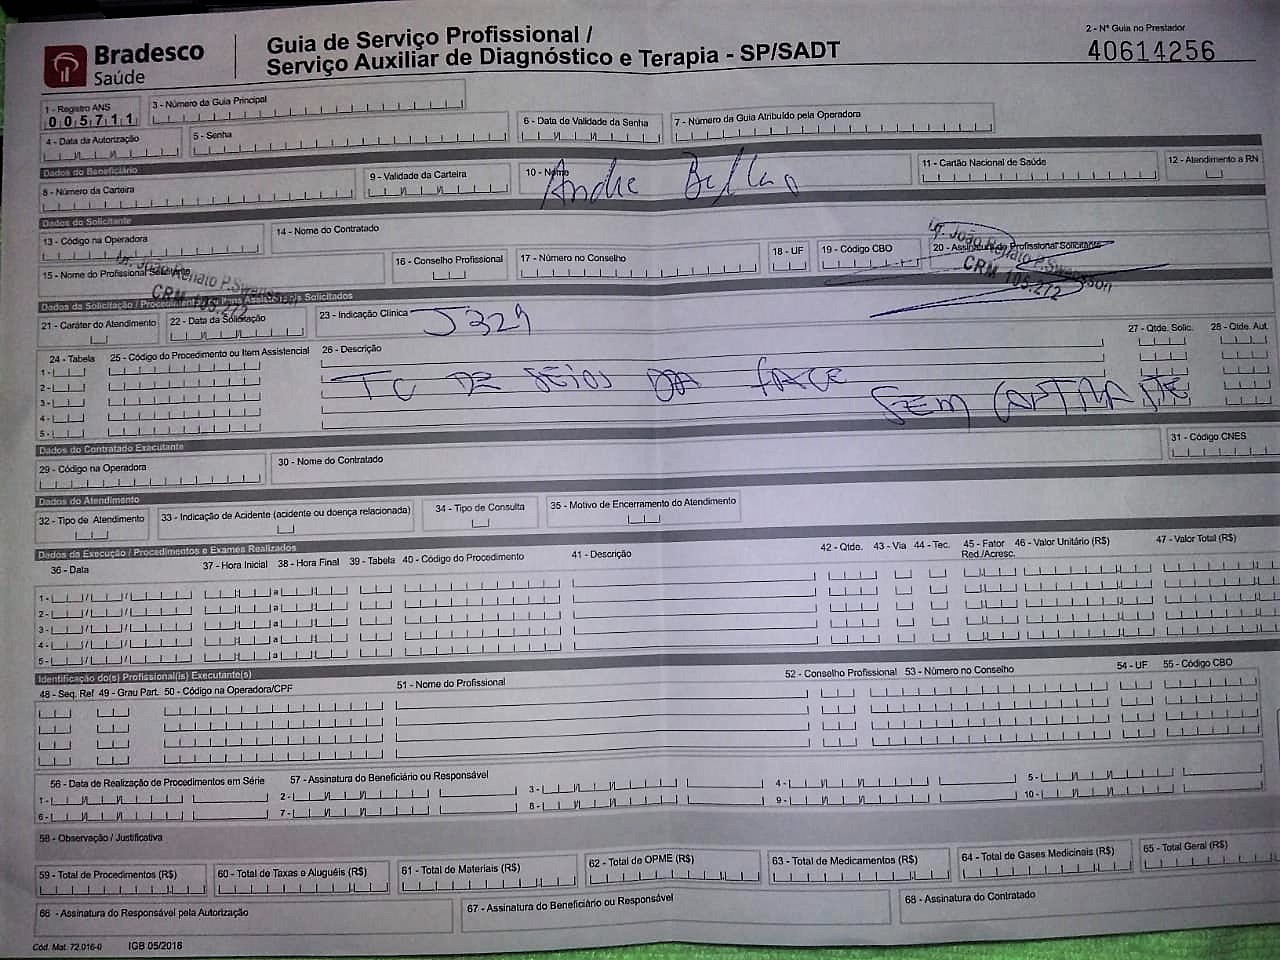 Bradesco
Saúde
Guia de Serviço Profissional /
Serviço Auxiliar de Diagnóstico e Terapia - SP/SADT
2 - Nº Guia no Prestador
40614256
1 - Registro ANS
005711
3 - Número da Guia Principal
4 - Data da Autorização
5 - Senha
6 - Data de Validade da Senha
7 - Número da Guia Atribuído pela Operadora
Dados do Beneficiário
8 - Número da Carteira
9 - Validade da Carteira
10 - Nome
Andre
11 - Cartão Nacional de Saúde
12 - Atendimento a RN
Dados do Solicitante
13 - Código na Operadora
14 - Nome do Contratado
15 - Nome do Profissional Solicitante
Dr. João Renato P.
CRM 105.272
16 - Conselho Profissional
17 - Número no Conselho
18 - UF
19 - Código CBO
20 - Assinatura do Profissional Solicitante
Dr. João Renato P.
CRM 105.272
Dados da Solicitação / Procedimentos ou Itens Assistenciais Solicitados
21 - Caráter do Atendimento
22 - Data da Solicitação
23 - Indicação Clínica
J329
24 - Tabela
25 - Código do Procedimento ou Item Assistencial
26 - Descrição
27 - Qtde. Solic.
28 - Qtde. Aut.
1 -
2 -
3 -
4 -
5 -
TC DE SEIOS DA FACE
SEM CONTRASTE
Dados do Contratado Executante
29 - Código na Operadora
30 - Nome do Contratado
31 - Código CNES
Dados do Atendimento
32 - Tipo de Atendimento
33 - Indicação de Acidente (acidente ou doença relacionada)
34 - Tipo de Consulta
35 - Motivo de Encerramento do Atendimento
Dados da Execução / Procedimentos e Exames Realizados
36 - Data
37 - Hora Inicial
38 - Hora Final
39 - Tabela
40 - Código do Procedimento
41 - Descrição
42 - Qtde.
43 - Via
44 - Tec.
45 - Fator
Red./Acresc.
46 - Valor Unitário (R$)
47 - Valor Total (R$)
1 - / / a
2 - / / a
3 - / / a
4 - / / a
5 - / / a
Identificação do(s) Profissional(is) Executante(s)
48 - Seq. Ref
49 - Grau Part.
50 - Código na Operadora/CPF
51 - Nome do Profissional
52 - Conselho Profissional
53 - Número no Conselho
54 - UF
55 - Código CBO
56 - Data de Realização de Procedimentos em Série
57 - Assinatura do Beneficiário ou Responsável
1 - / /
2 - / /
3 - / /
4 - / /
5 - / /
6 - / /
7 - / /
8 - / /
9 - / /
10 - / /
58 - Observação / Justificativa
59 - Total de Procedimentos (R$)
60 - Total de Taxas e Aluguéis (R$)
61 - Total de Materiais (R$)
62 - Total de OPME (R$)
63 - Total de Medicamentos (R$)
64 - Total de Gases Medicinais (R$)
65 - Total Geral (R$)
66 - Assinatura do Responsável pela Autorização
67 - Assinatura do Beneficiário ou Responsável
68 - Assinatura do Contratado
Cód. Mat. 72.016-0 IGB 05/2018